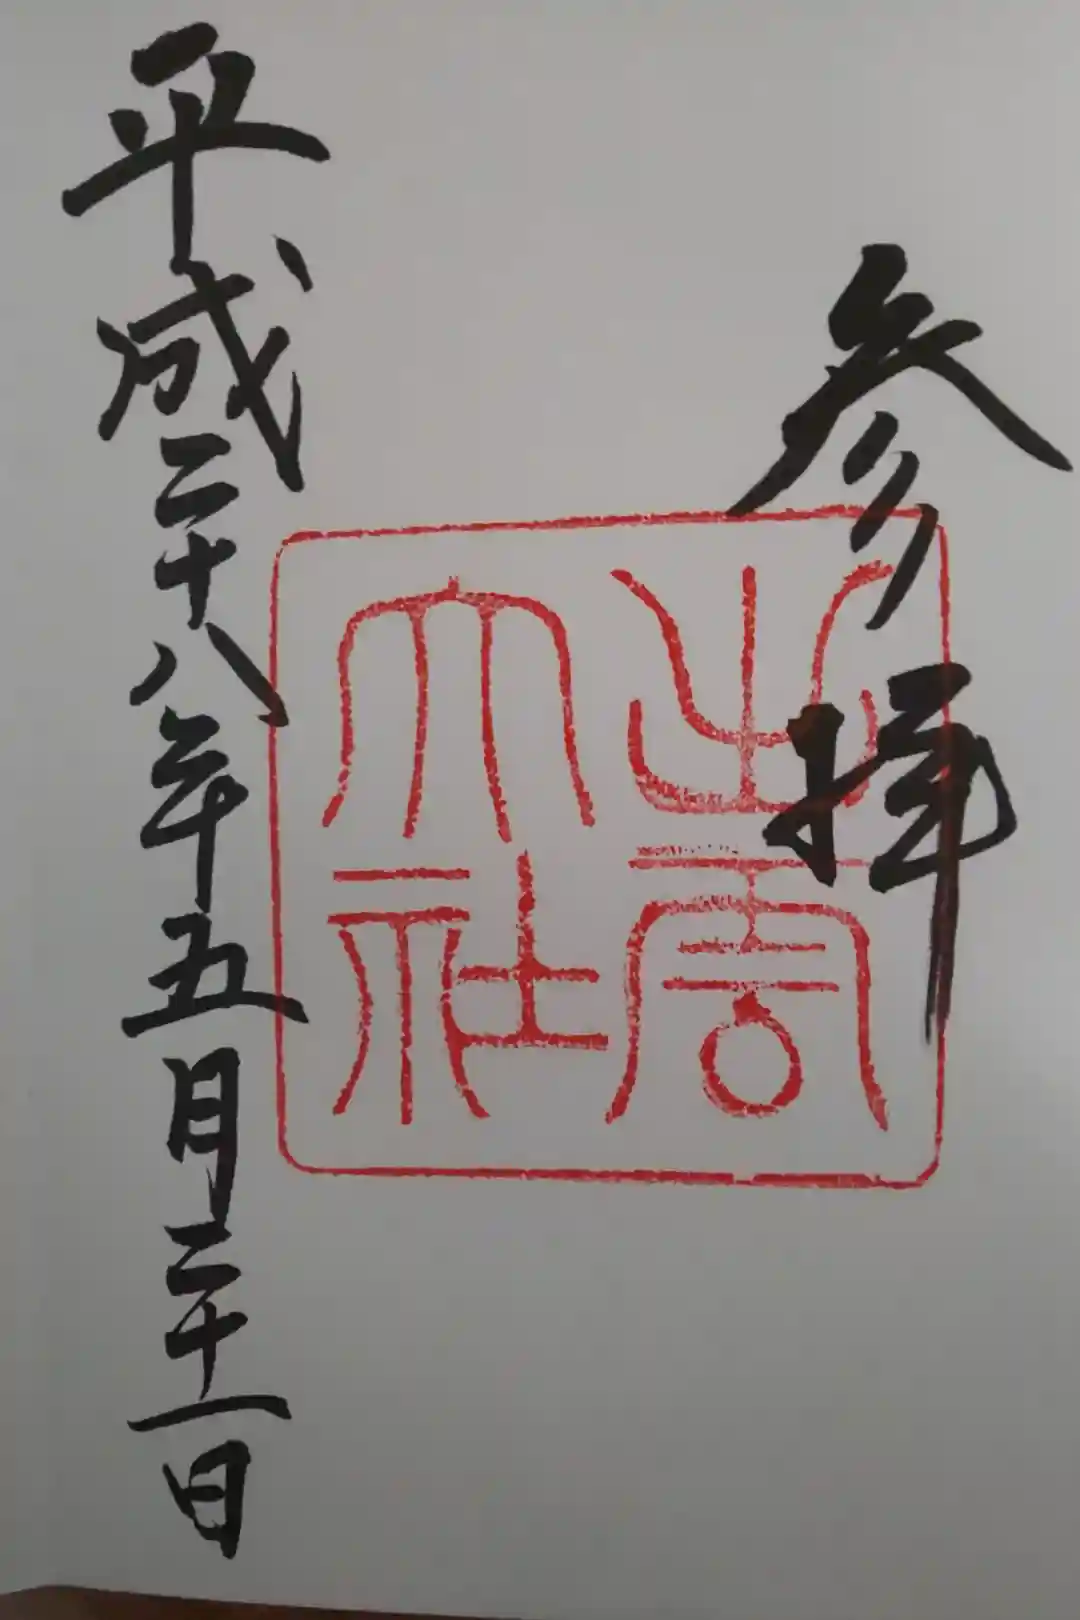 参拝
出雲大社
平成二十八年五月二十一日